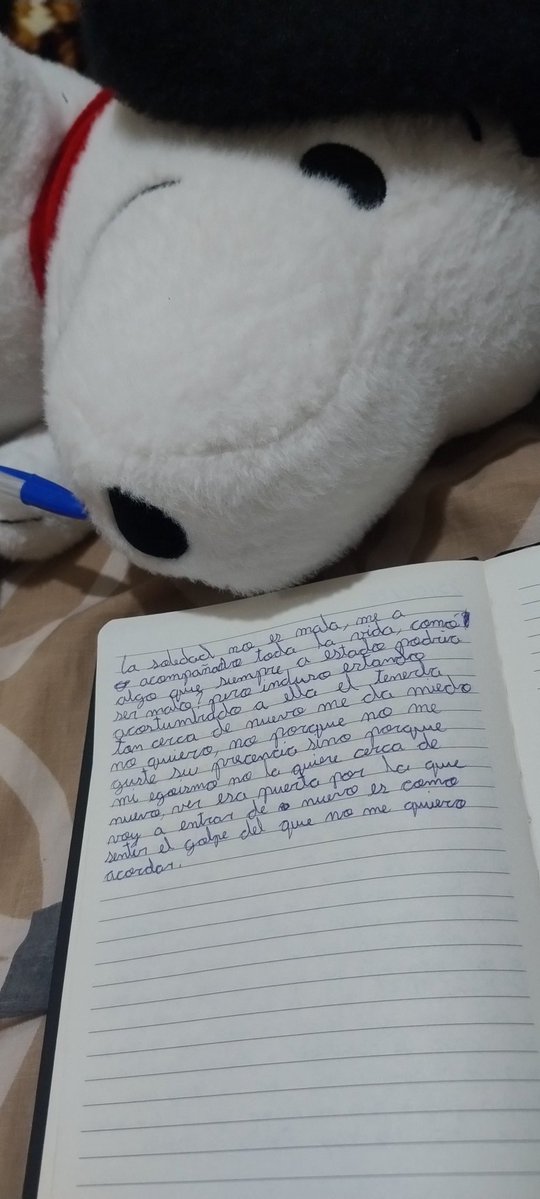 La soledad no es mala, me a
acompañado toda la vida, como
algo que siempre a estado podria
ser malo? pero incluso estando
acostumbrado a ella el tenerla
tan cerca de nuevo me da miedo
no quiero, no porque no me
guste su precencia sino porque
mi egoismo no la quiere cerca de
nuevo, ver esa puerta por la que
voy a entrar de nuevo es como
sentir el golpe del que no me quiero
acordar.